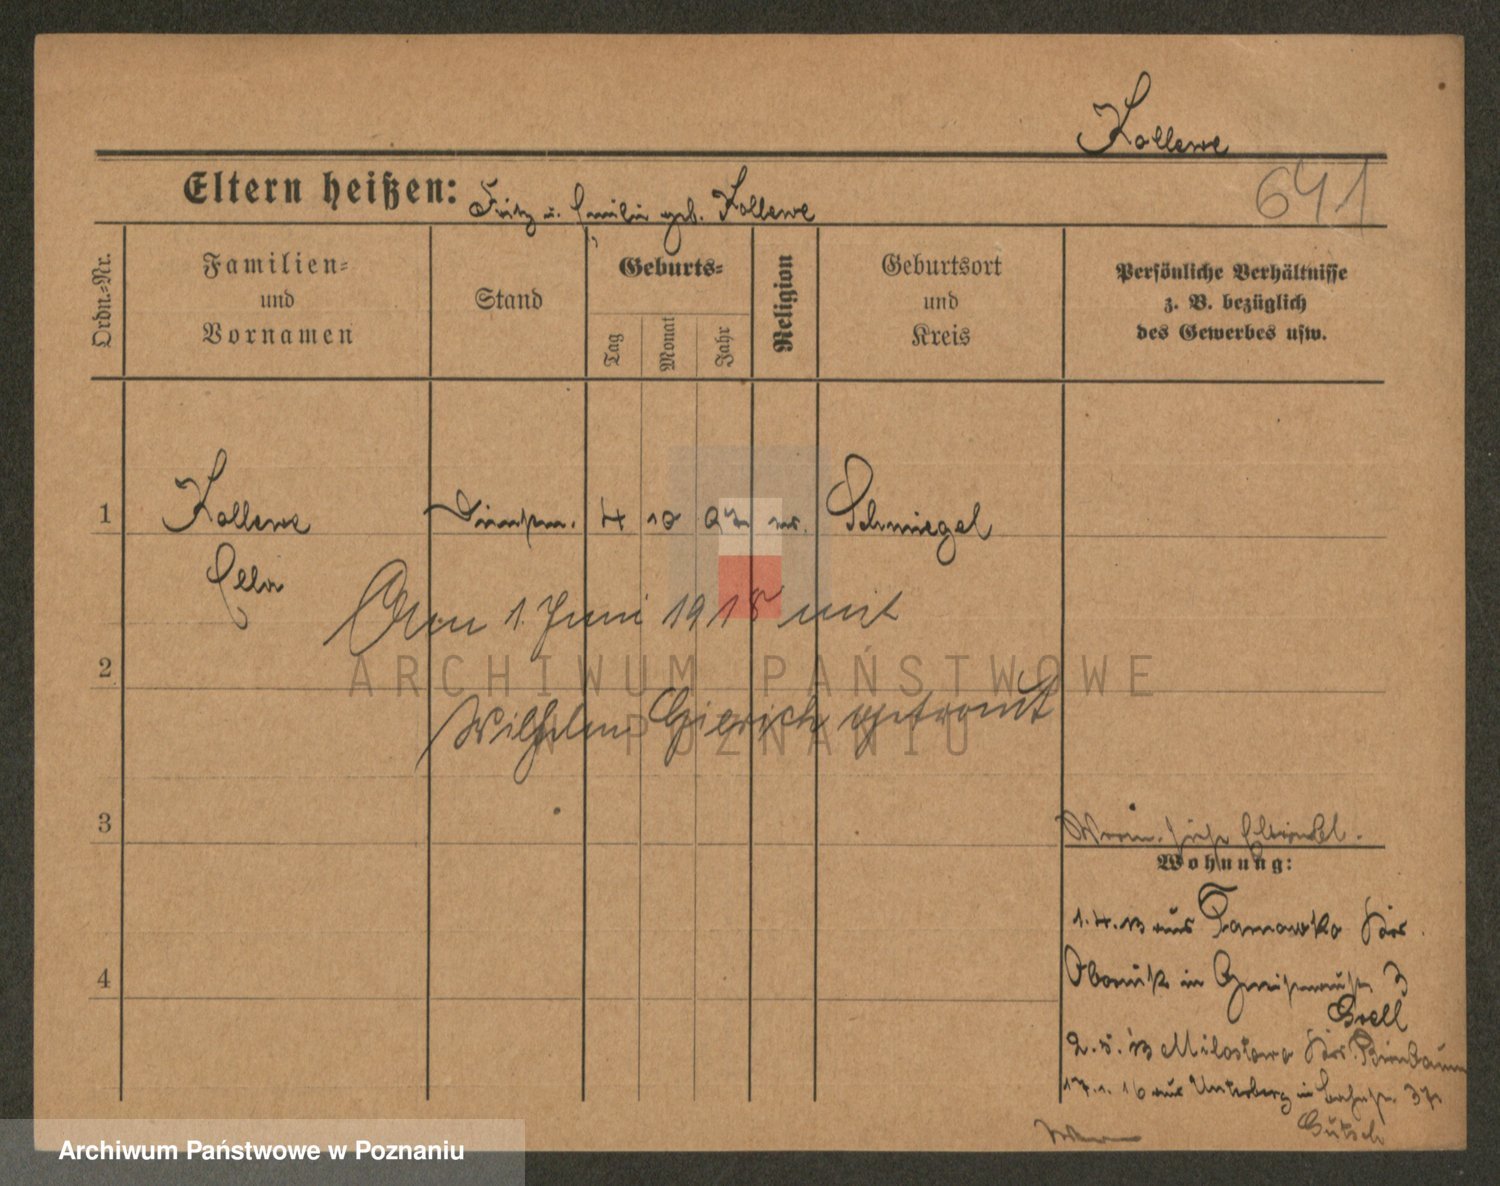 Kollewe
641
Eltern heißen: Fritz u. Emilie geb. Kollewe
Ordn.-Nr.
Familien-
und
Vornamen
Stand
Geburts-
Tag
Monat
Jahr
Religion
Geburtsort
und
Kreis
Persönliche Verhältnisse
z. B. bezüglich
des Gewerbes usw.
1
Kollewe
4 10 97
Schmiegel
Ella
Am 1. Juni 1918 mit
2
Wilhelm Gierich getraut
3
Wohnung:
1.4.13 aus Tarnowko Krs.
Obornik in Gneisenaustr. 3
Grell
4
2.5.13 Milostowo Krs. Birnbaum
17.1.16 aus Unterberg in
Gutsch
ARCHIWUM PAŃSTWOWE
W POZNANIU
Archiwum Państwowe w Poznaniu